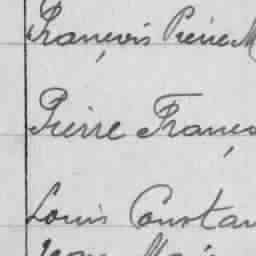 François Pierre M
Pierre Franço
Louis Constan
Jean Mari